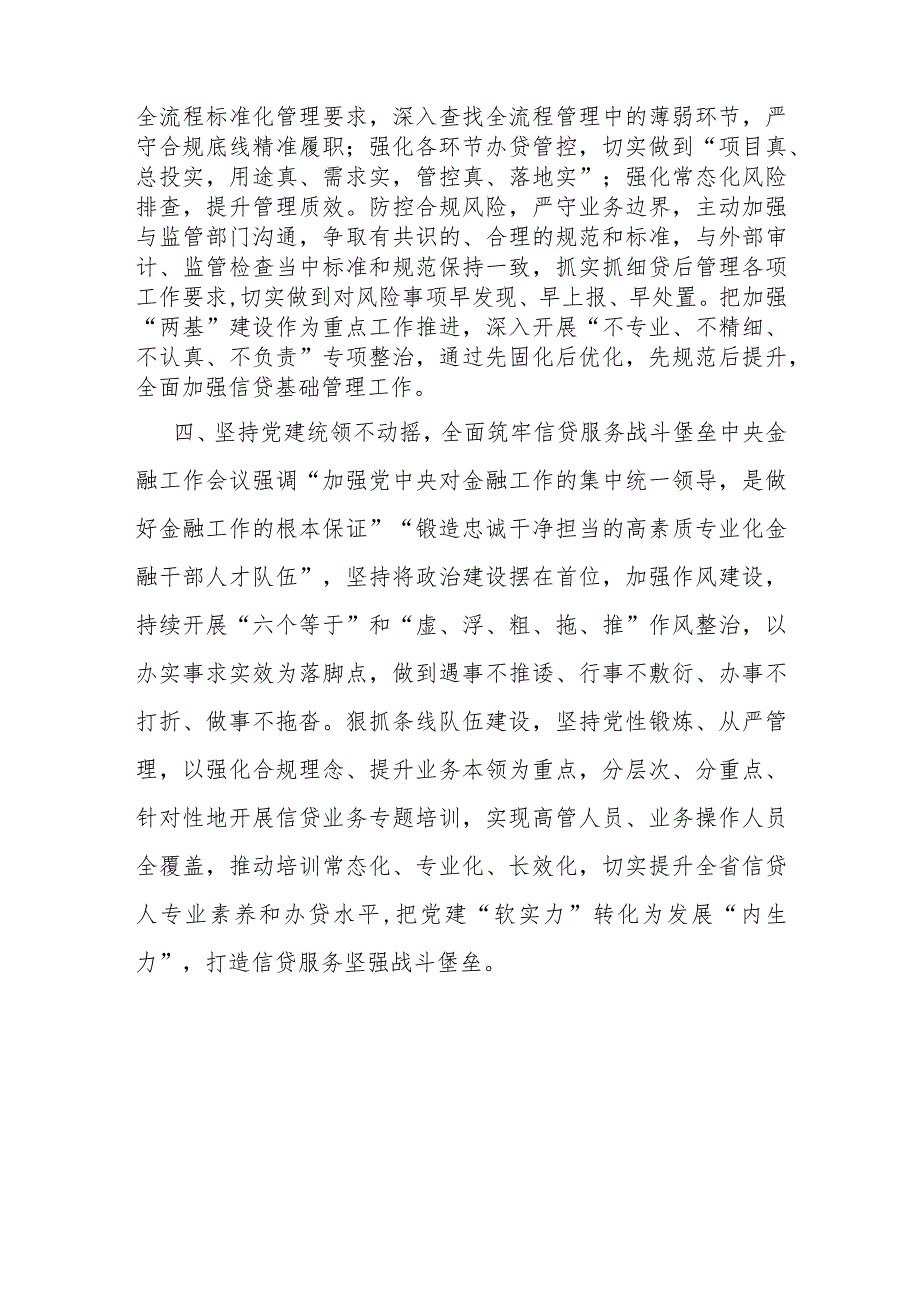 全流程标准化管理要求，深入查找全流程管理中的薄弱环节，严
守合规底线精准履职；强化各环节办贷管控，切实做到“项目真、
总投实，用途真、需求实，管控真、落地实”；强化常态化风险
排查，提升管理质效。防控合规风险，严守业务边界，主动加强
与监管部门沟通，争取有共识的、合理的规范和标准，与外部审
计、监管检查当中标准和规范保持一致，抓实抓细贷后管理各项
工作要求,切实做到对风险事项早发现、早上报、早处置。把加强
“两基”建设作为重点工作推进，深入开展“不专业、不精细、
不认真、不负责”专项整治，通过先固化后优化，先规范后提升，
全面加强信贷基础管理工作。
四、坚持党建统领不动摇，全面筑牢信贷服务战斗堡垒中央金
融工作会议强调“加强党中央对金融工作的集中统一领导，是做
好金融工作的根本保证”“锻造忠诚干净担当的高素质专业化金
融干部人才队伍”，坚持将政治建设摆在首位，加强作风建设，
持续开展“六个等于”和“虚、浮、粗、拖、推”作风整治，以
办实事求实效为落脚点，做到遇事不推诿、行事不敷衍、办事不
打折、做事不拖沓。狠抓条线队伍建设，坚持党性锻炼、从严管
理，以强化合规理念、提升业务本领为重点，分层次、分重点、
针对性地开展信贷业务专题培训，实现高管人员、业务操作人员
全覆盖，推动培训常态化、专业化、长效化，切实提升全省信贷
人专业素养和办贷水平,把党建“软实力”转化为发展“内生
力”，打造信贷服务坚强战斗堡垒。